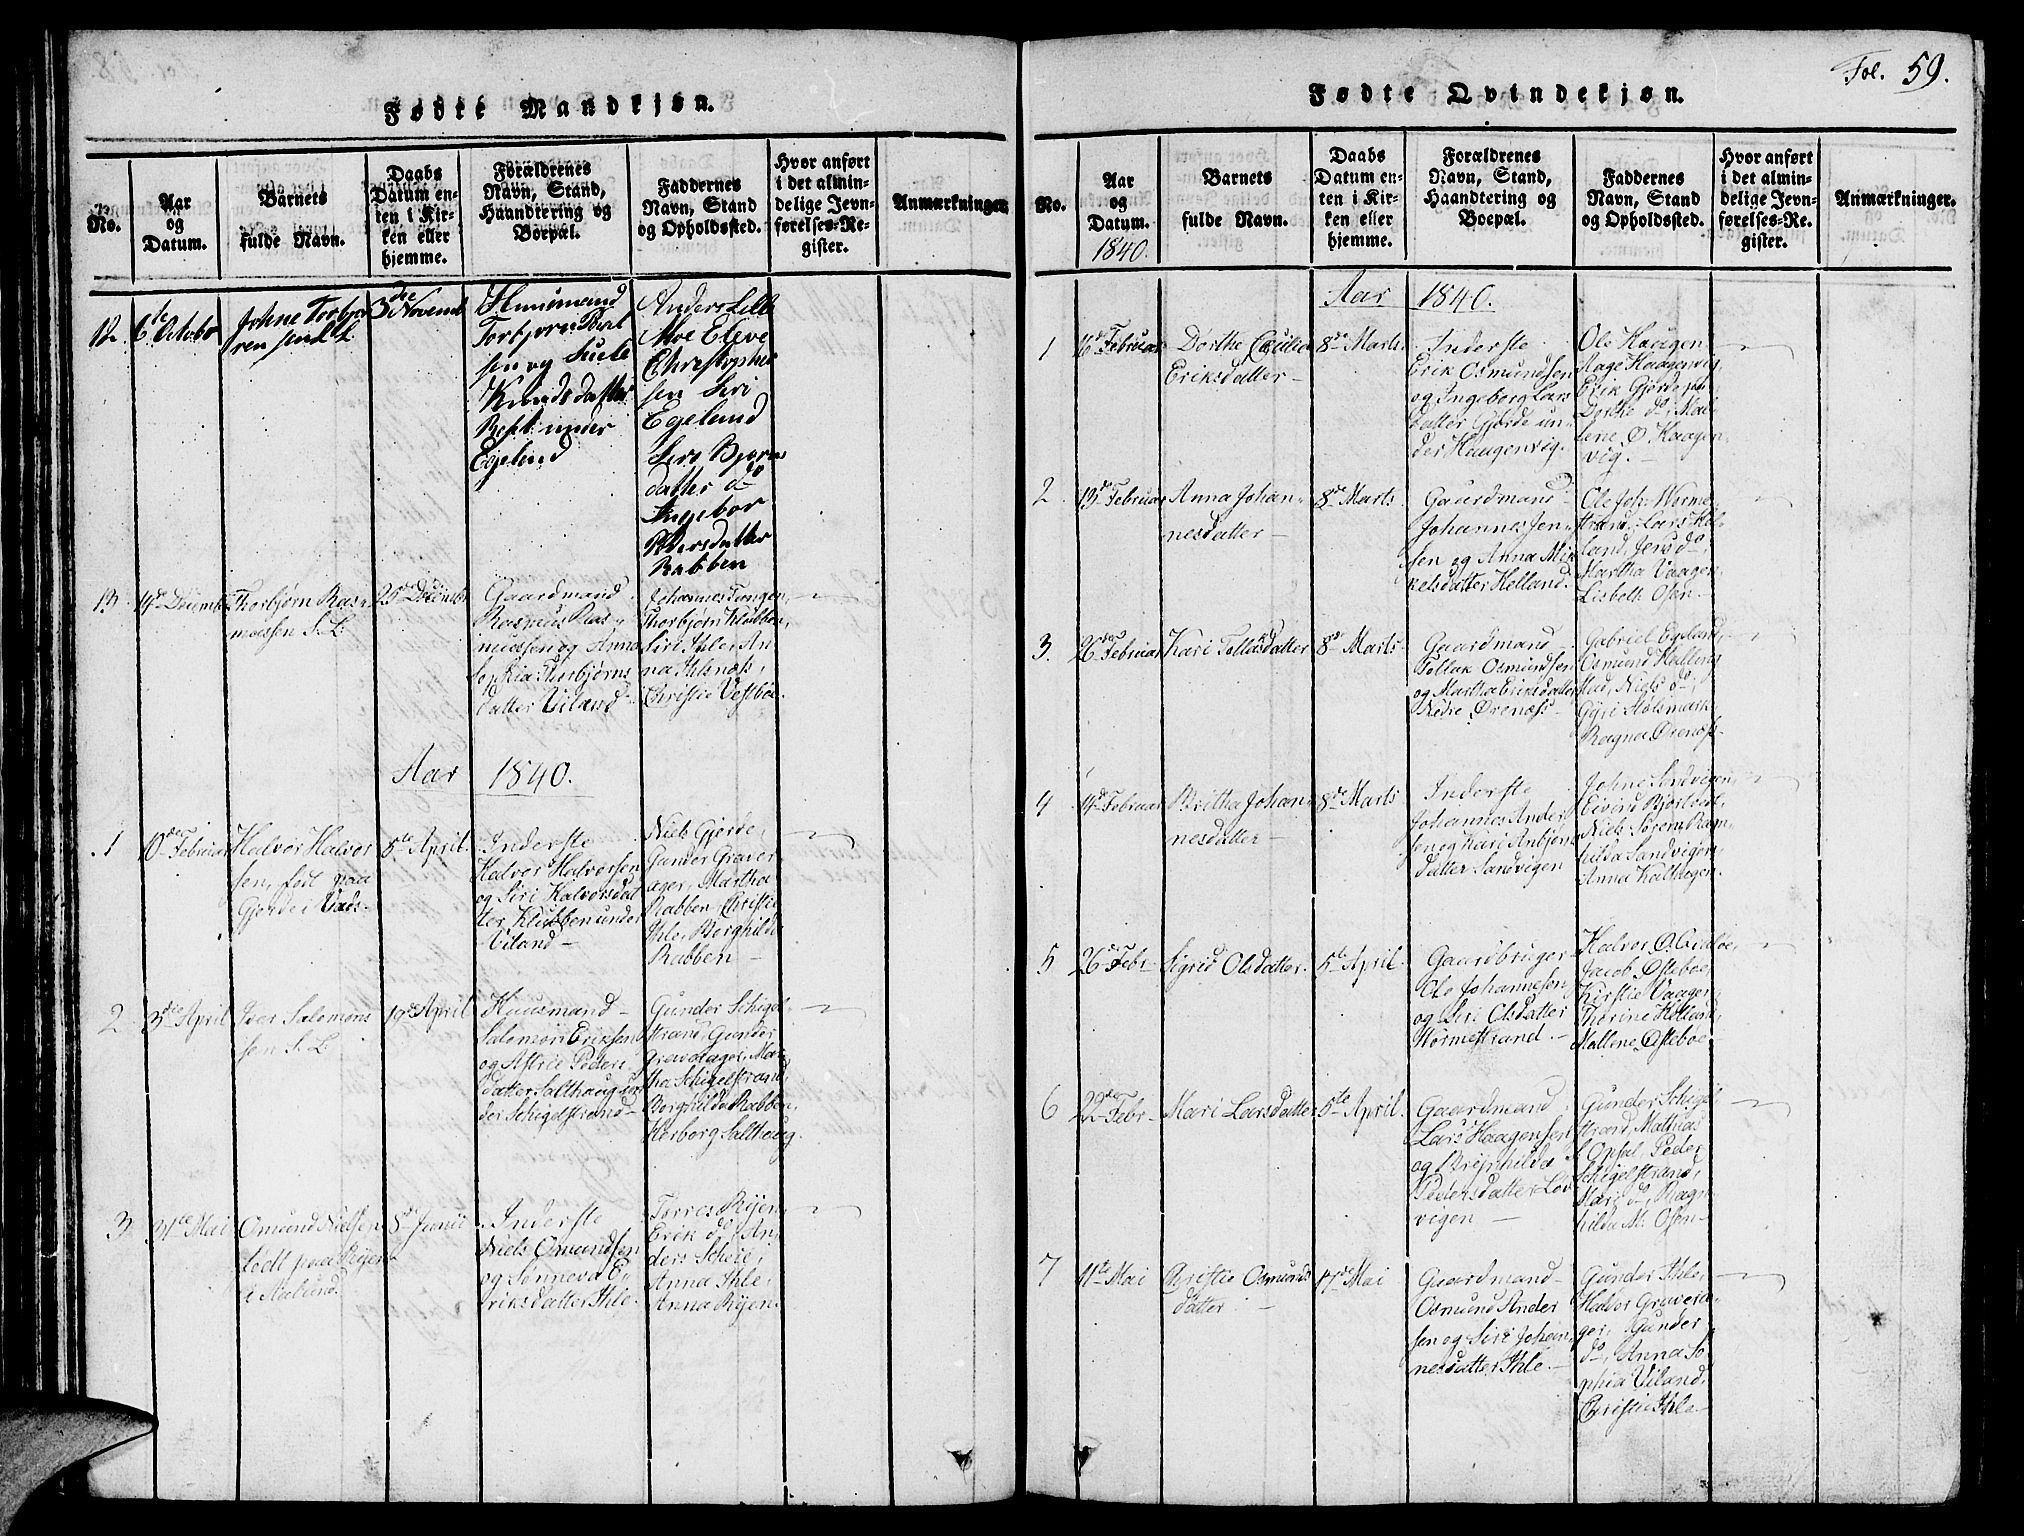 Fødte Mandkjøn.
No.
Aar
og
Datum.
Barnets
fulde Navn.
Daabs
Datum en-
ten i Kir-
ken eller
hjemme.
Forældrenes
Navn, Stand,
Haandtering og
Boepæl.
Faddernes
Navn, Stand
og Opholdssted.
Hvor anført
i det almin-
delige Jevn-
førelses-Re-
gister.
Anmærkninger.
12
6te Octobr
Johne Torbjør
3die Novemb
Huusmand
Torbjørn
sen og
Knudsdatter
under
Egelund
Anders Lille
Moe Eleve
Christopher
sen Siri
Egelund
Siri Bjørns
datter do
Ingebor
Pedersdatter
Rabben
13.
14de Decembr
Thorbjørn Ras-
mussen S. L.
25de Decembr
Gaardmand
Rasmus Ras-
mussen og Anna
Sophia Thorbjørns
datter Viland
Johannes Tangen,
Thorbjørn Klubben,
Siri Ihle, An
na Ihlenæss,
Christie Vestbøe.
Aar 1840.
1
10de Februar
Halvor Halvor
sen, født paa
Gjerde i Vads-
5te April.
Inderste
Halvor Halvorsen
og Siri Halvorsdat
ter Klubben under
Viland
Niels Gjerde,
Gunder Graver
ager, Martha
Rabben, Christie
Ihle, Borghilde
Rabben
2
3die April
Iver Salomons
sen S. L.
19de April
Huusmand
Salomon Eriksen
og Astrie Peders
datter Salthaug un
der Schigelstrand
Gunder Schigel
strand, Gunder
Graverager, Mar
tha Schigelstrand,
Borghilde Rabben,
Herborg Salthaug.
3
31te Mai
Osmund Nielsen
født paa Ryen
i Aalund.
8de Junii
Inderste
Niels Osmundsen
og Sønneva E-
riksdatter Ihle.
Torres Ryen,
Erik do, An
ders Scheie,
Anna Ihle,
Anna Ryen.
Fol. 59.
Fødte Qvindekjøn.
No.
Aar
og
Datum.
1840.
Barnets
fulde Navn.
Daabs
Datum en-
ten i Kir-
ken eller
hjemme.
Forældrenes
Navn, Stand,
Haandtering og
Boepæl.
Faddernes
Navn, Stand
og Opholdssted.
Hvor anført
i det almin-
delige Jevn-
førelses-Re-
gister.
Anmærkninger.
Aar 1840.
1
16de Februar
Dorthe Cecilia
Eriksdatter
8de Marts
Inderste
Erik Osmundsen
og Ingeborg Lars
datter Gjerde un-
der Haagenvig.
Ole Haagen
Aage Haagenvig,
Erik Gjerde,
Dorthe do, Mal-
lene O Haagen
vig.
2
13de Februar
Anna Johan-
nesdatter
8de Marts
Gaardmand
Johannes Jen-
sen og Anna Mik
kelsdatter Helland.
Ole Joh. Worme
strand, Lars Hel-
land, Jens do,
Martha Vaagen
Lisbeth Osen.
3.
26de Februar
Kari Tollaksdatter
8de Marts
Gaardmand
Tollak Osmundsen
og Martha Eriksdatter
Nedre Ørenæss
Gabriel Egeland,
Osmund Helling
stad, Niels do,
Gyri Holsmark
Ragna Ørenæss.
4
14de Februar
Britha Johan
nesdatter
8de Marts
Inderste
Johannes Ander
sen og Kari Anbjørns
datter Sandvigen
Johne Sandvigen,
Eivind Bjørløw,
Niels Sørem, Ram
hilda Sandvigen
Anna Kalhagen.
5
26de Febr
Sigrid Olsdatter
5te April
Gaardbruger
Ole Johannesen
og Siri Olsdatter
Wormestrand
Halvor O.
Jacob Østebøe,
Kirstie Vaagen
Thorine Helland,
Mallene Østebøe.
6
22de Febr
Mari Larsdatter
5te April.
Gaardmand
Lars Haagensen
og Brynhilda
Pedersdatter Løv
vigen
Gunder Schigel
strand, Mathias
Opsal, Peder
Schigelstrand,
Mari do, Ragn
hilda M. Osen
7
11te Mai
Christie Osmunds
datter
17de Mai
Gaardmand
Osmund Ander
sen og Siri Johan
nesdatter Ihle.
Gunder Ihle,
Halvor Gravera-
ger, Gunder
do, Anna So
phia Viland,
Christie Ihle